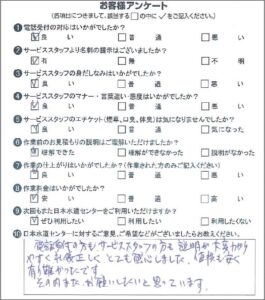 お客様アンケート
(各項目につきまして、該当する□の中に✓をご記入ください。)
1 電話受付の対応はいかがでしたか?
☑良い □普通 □悪い
2 サービススタッフより名刺の提示はございましたか?
☑有 □無 □不明
3 サービススタッフの身だしなみはいかがでしたか?
☑良い □普通 □悪い
4 サービススタッフのマナー・言葉遣い・態度はいかがでしたか?
☑良い □普通 □悪い
5 サービススタッフのエチケット(煙草、口臭、体臭)は気になりませんでしたか?
☑良い □普通 □気になった
6 作業前のお見積もりの説明はご理解いただけましたか?
☑理解できた □理解ができなかった □説明がなかった
7 作業の仕上がりはいかがでしたか?(作業された方のみご記入ください)
☑良い □普通 □悪い
8 作業料金はいかがでしたか?
☑安い □普通 □高い
9 次回もまた日本水道センターをご利用いただけますか?
☑ぜひ利用したい □利用したい □利用したくない
10 日本水道センターに対するご意見、ご希望などがございましたらお教えください。
電話受付の方もサービススタッフの方も説明が大変分かり
やすくお人柄正しく とても感心しました。値段も安く
有り難かったです。
その内また、お願いしたいと思っています。